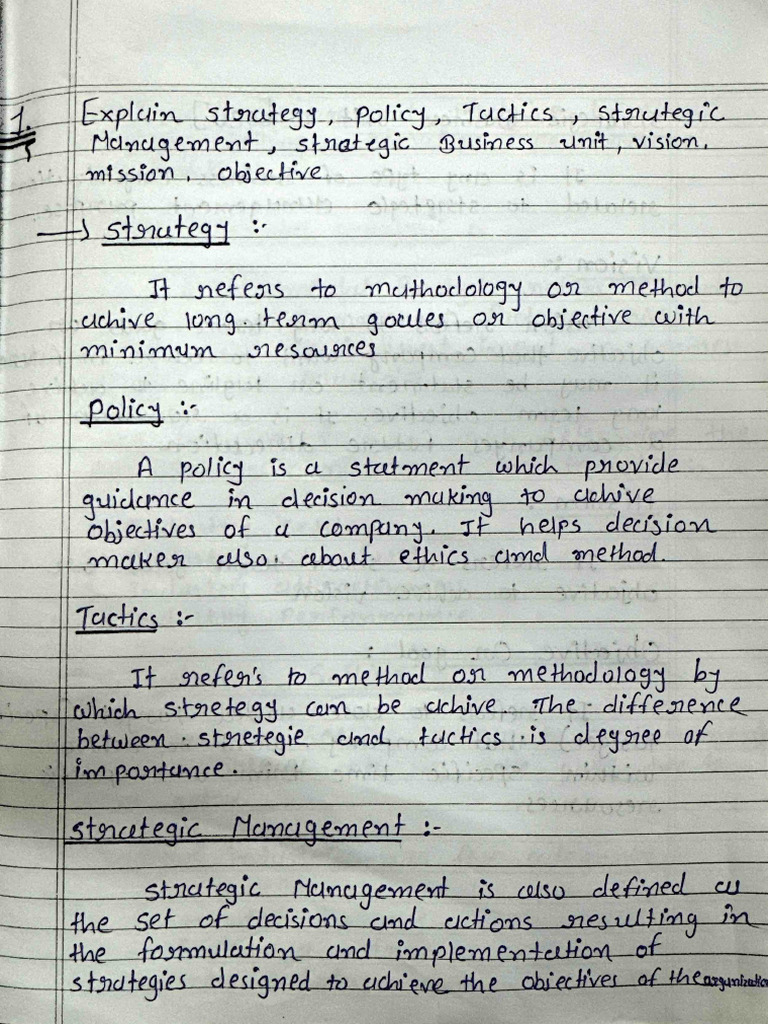 1. Explain strategy, policy, Tactics, strategic
Management, strategic Business unit, vision,
mission, objective
→ strategy :-
It refers to mathodology or method to
achive long term goales or objective with
minimum resources
policy :-
A policy is a statment which provide
guidance in decision making to achive
objectives of a company. It helps decision
maker also about ethics and method.
Tactics :-
It refer's to method or methodology by
which stretegy can be achive. The difference
between stretegie and tactics is degree of
importance.
strategic Management :-
strategic Management is also defined as
the set of decisions and actions resulting in
the formulation and implementation of
strategies designed to achieve the objectives of the organization